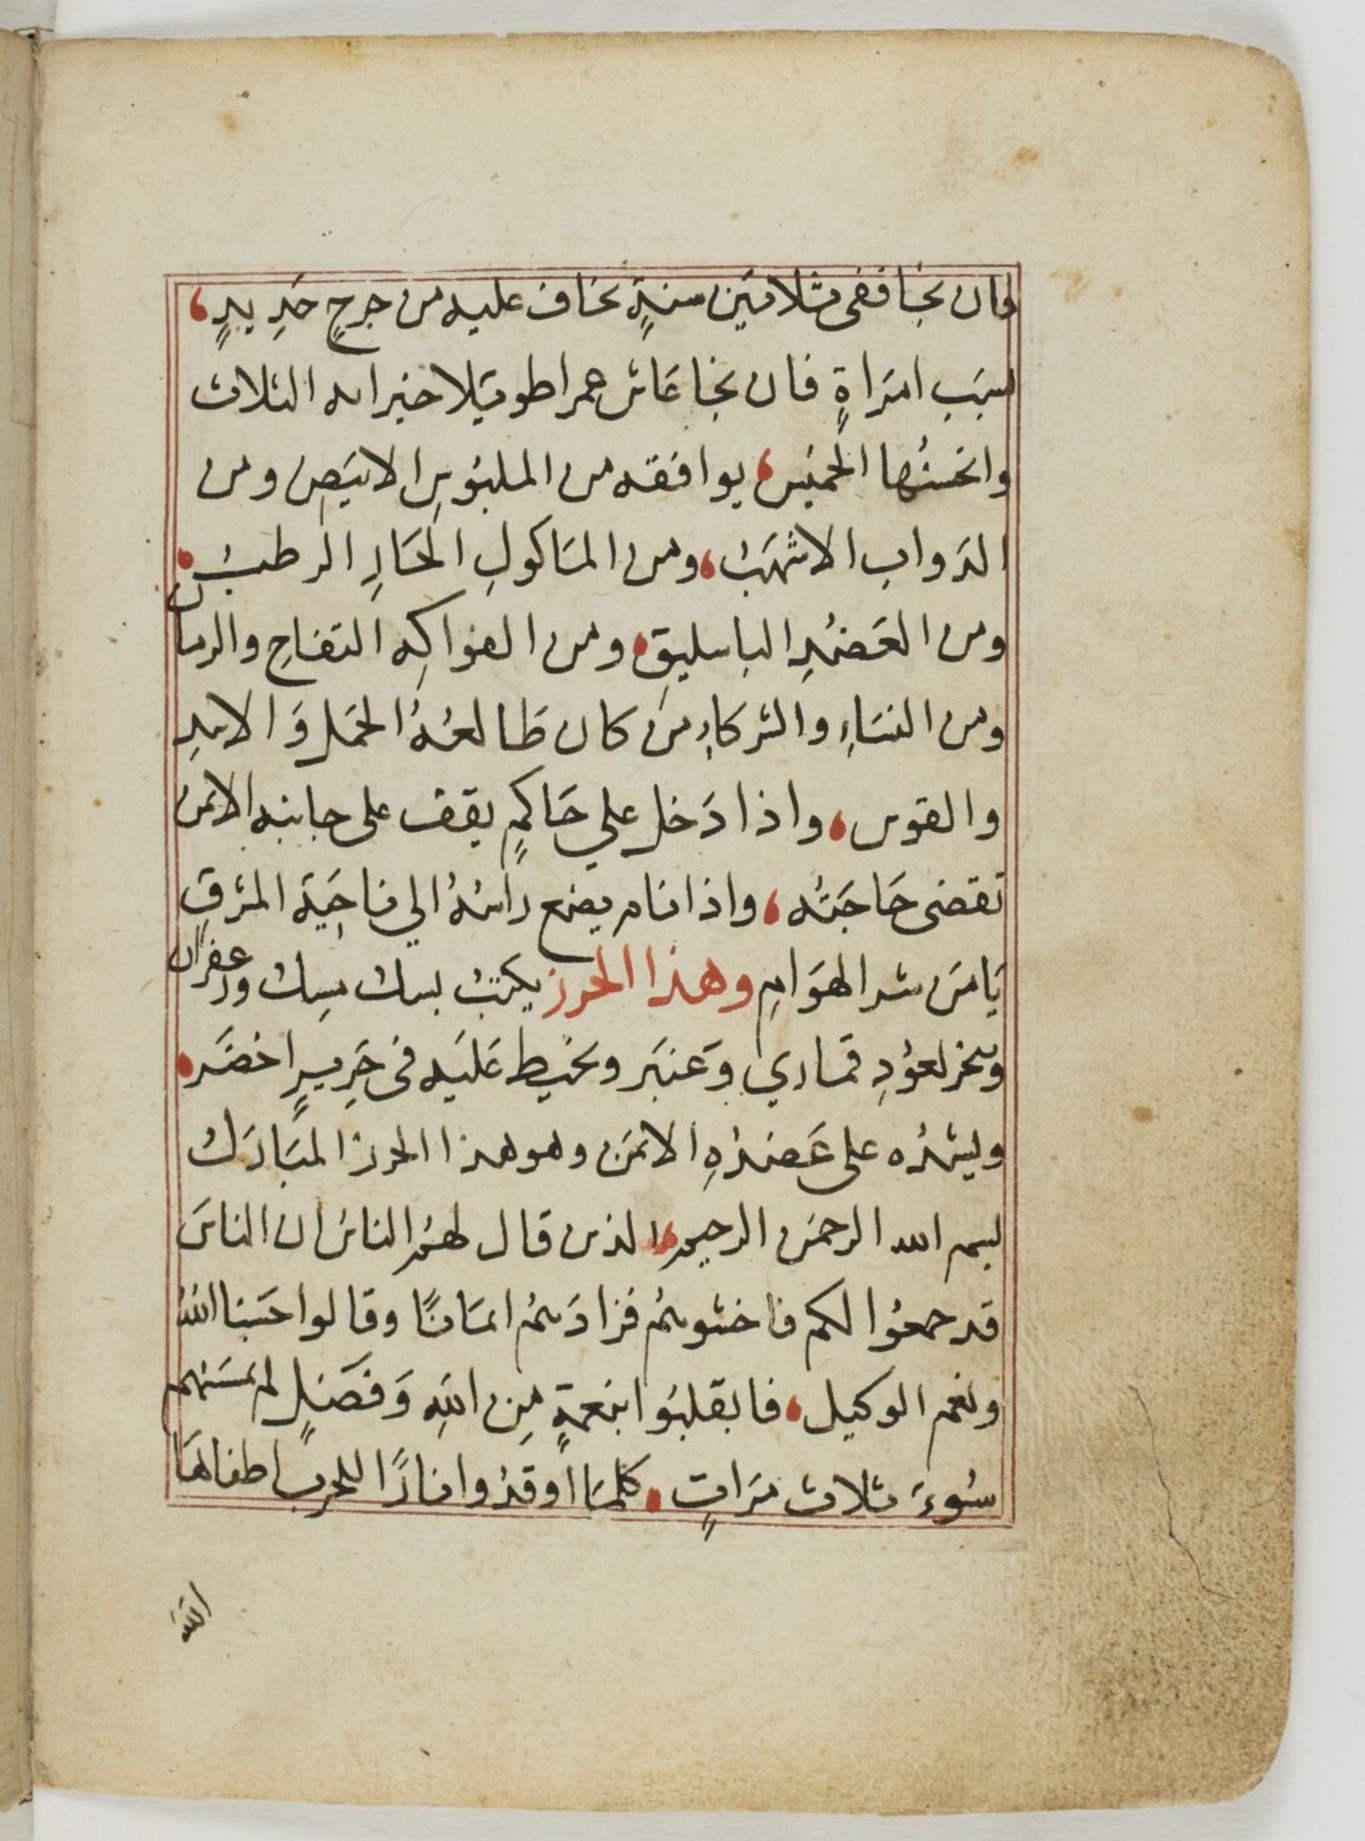 فان نجا ففى ثلاثين سنةٍ يخاف عليه من جرحٍ حَدِيدٍ،
بسبَب امرَاةٍ فان نجا عَاش عمرا طويلا خير ايامه الثلاث
وانحسُها الخميس، يوافقه من الملبُوسِ الابيَض ومن
الدَواب الاشهَبْ، ومن المَاكولِ الحَارِ الرطبْ،
ومن العَضُدِ الباسليقِ، ومن الفواكِه التفاحِ والرمان
ومن النسَاءِ والشركاءِ مَن كان طَالعُهُ الحمَل وَ الاسَدِ
والقوس، واذا دَخل علي حَاكمٍ يقف على جانبه الايمن
تقضى حَاجَتُه، واذا نام يضع راسَهُ الي ناحِيَة المشرقِ
يَامَن شر الهوَامِ وهذا الحرز يكتبْ بسك مِسك وزعفران
ويبخر بعُودِ قماري وَعنبَر ويخيط عَليَه فى حَرِيرٍ اخضَر،
ويشدُه على عَضدُهِ الايمَن وهو هذا الحرز المبَارَك
بسم الله الرحمَن الرحيم، الذين قال لهُمُ الناسُ ان الناسَ
قد جمعُوا لكم فاخشوهُمُ فزادَهُمُ ايمَانًا وقالوا حَسبنا اللهُ
ونعم الوكيل، فانقلبُوا بنعمةٍ مِن اللهِ وَفَضلٍ لم يمسَسْهم
سُوءَ ثلاث مَراتٍ، كلمَا أوقدُوا نارًا للحرب اطفاهَا
اللهُ